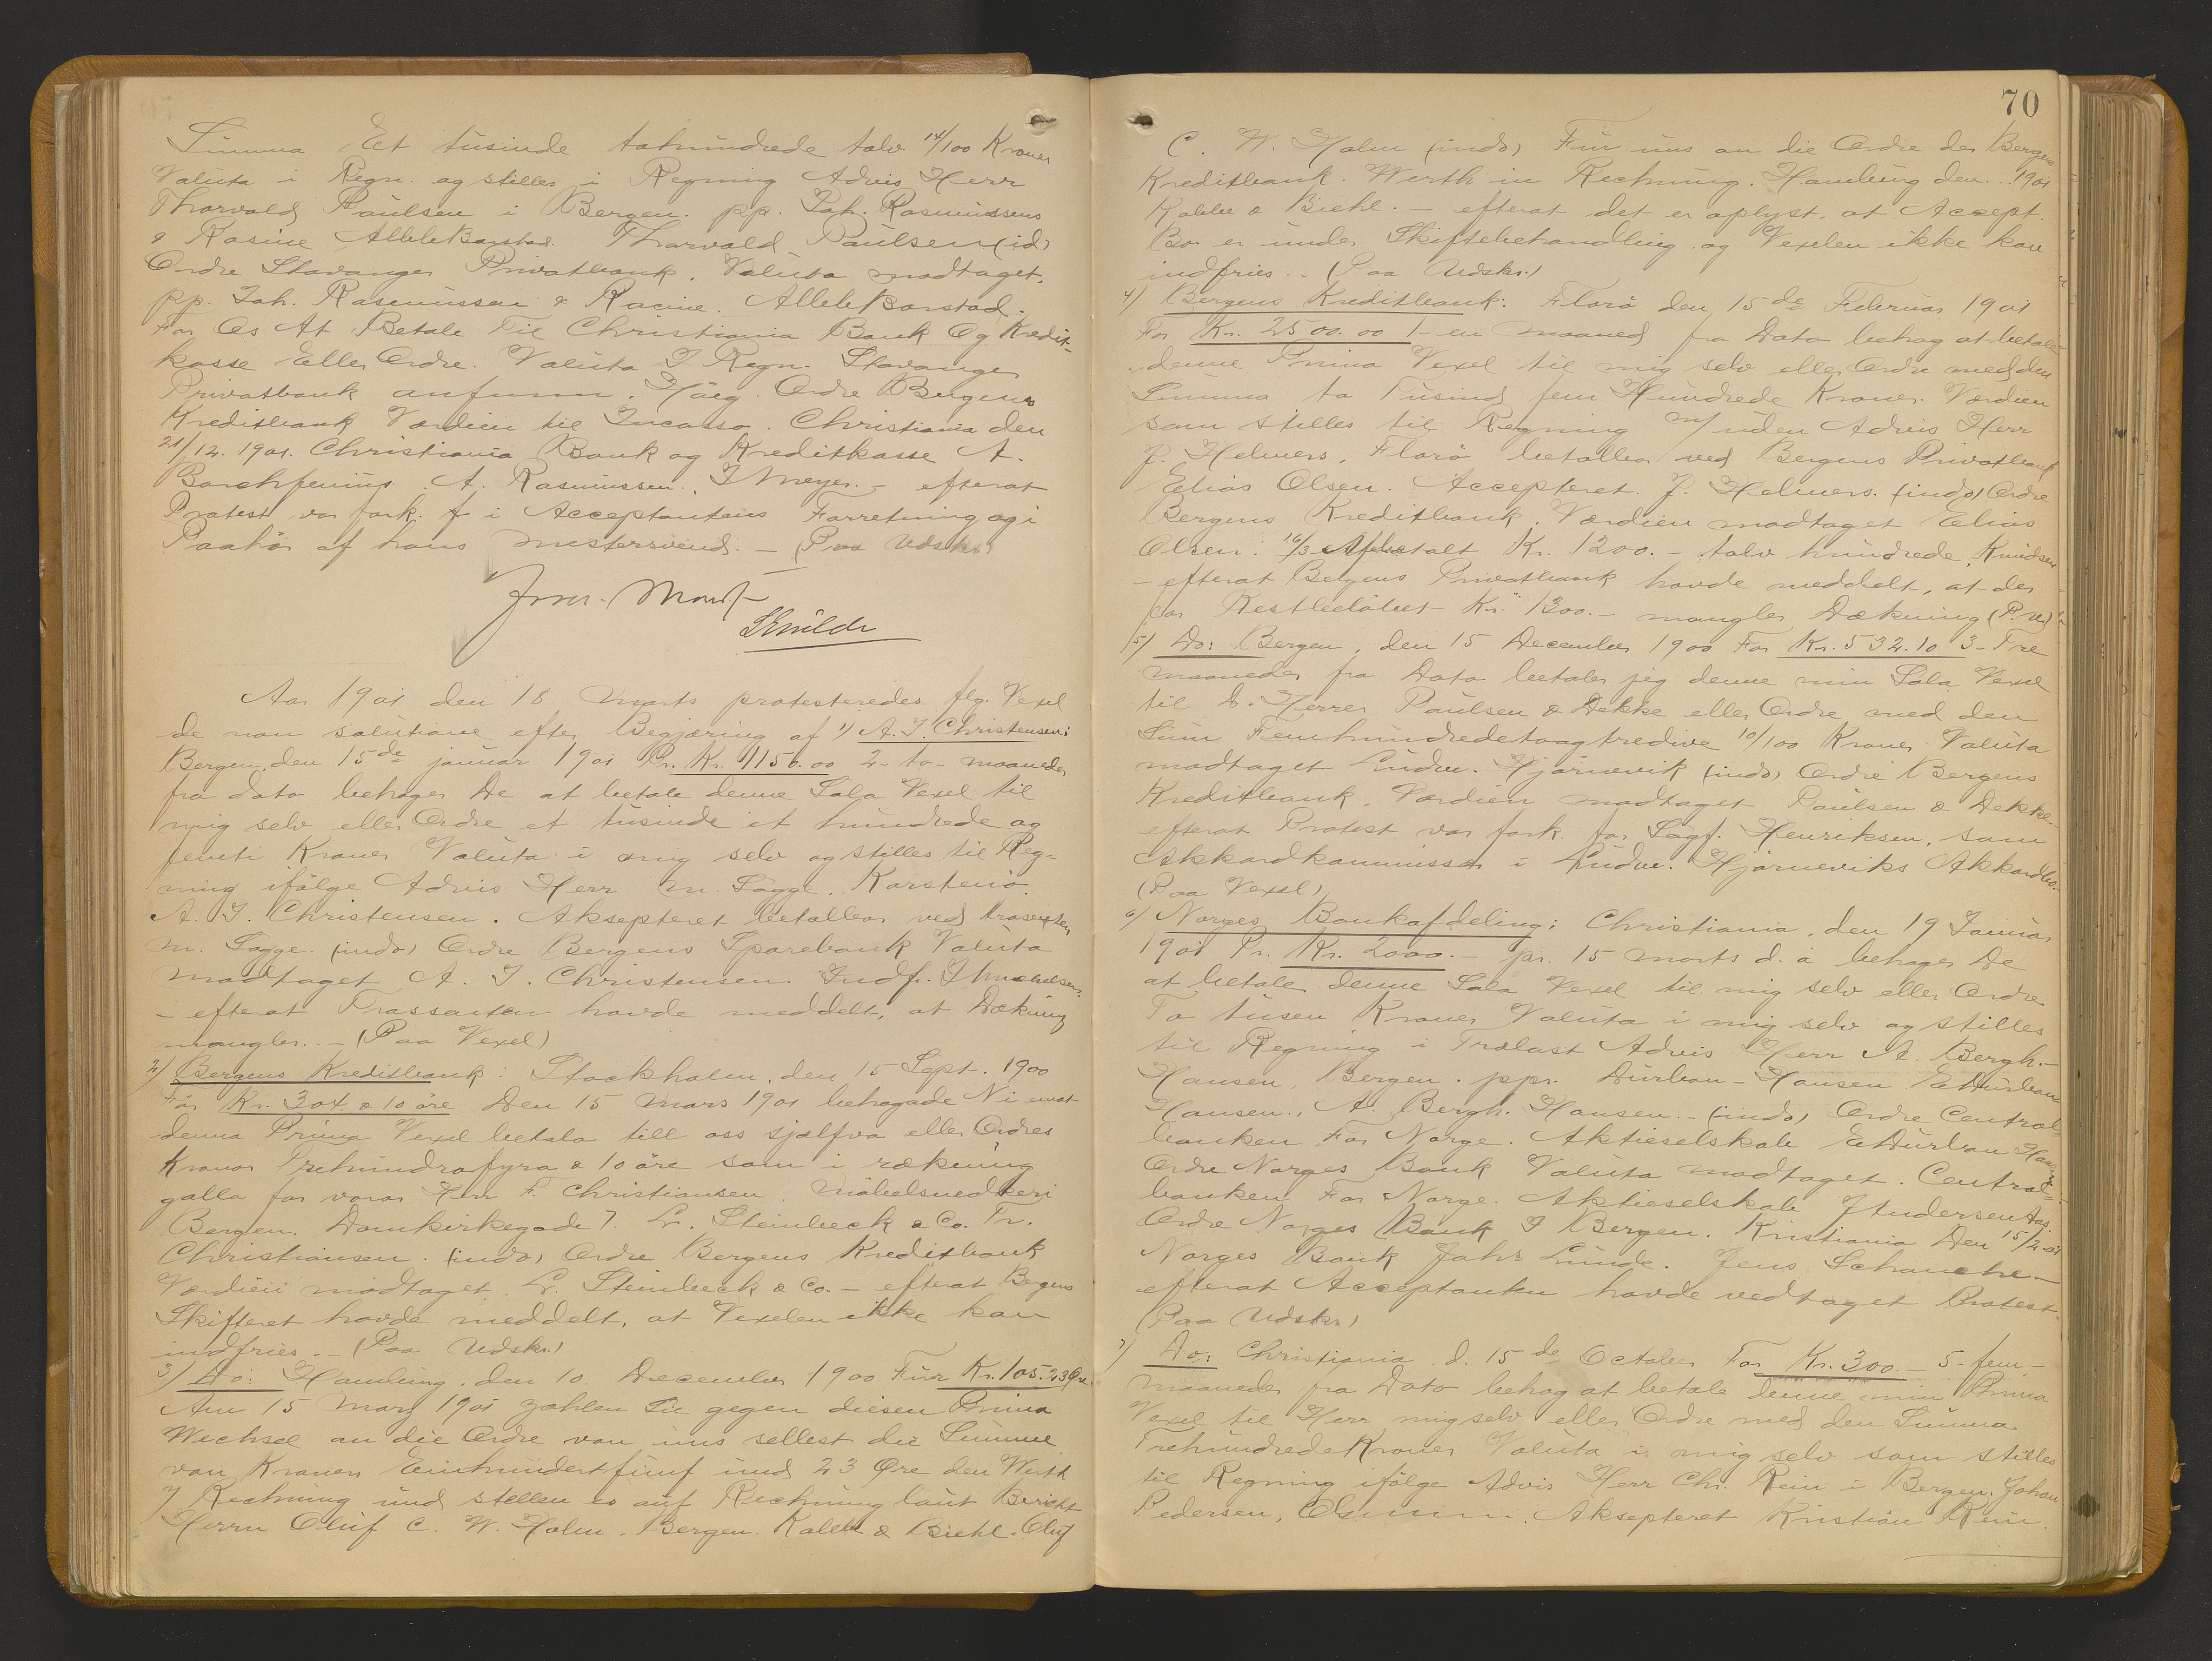 Summa Et tusinde tohundrede tolv 14/100 Kroner
Valuta i Regn. og stilles i Regning Advis Herr
Thorvald Paulsen i Bergen. pp. Joh. Rasmussens
& Rasine Thorvald Paulsen (id)
Ordre Stavanger Privatbank. Valuta modtaget.
pp. Joh. Rasmussen & Racine.
For Os At Betale Til Christiania Bank Og Kredit-
kasse Eller Ordre. Valuta I Regn. Stavanger
Privatbank Ordre Bergens
Kreditbank Værdien til Incasso. Christiania den
21/12. 1901. Christiania Bank og Kreditkasse A.
A. Rasmussen. I Meyer. - efterat
Protest var fork. f i Acceptantens Forretning og i
Paahør af hans Mestersvend. - (Paa Udskr.)
Aar 1901 den 18 Marts protesteredes flg. Vexel
de non solutione efter Begjæring af 1) A. J. Christensen:
Bergen, den 15de januar 1901 Pr. Kr. 1150.00 2- to- maaneder
fra dato behager De at betale denne Sola Vexel til
mig selv eller Ordre et tusinde et hundrede og
femti Kroner Valuta i mig selv og stilles til Reg-
ning ifølge Advis Herr M. Sagge. Karstenø.
A. J. Christensen. Aksepteret betalbar ved trasenten
M. Sagge. (indo) Ordre Bergens Sparebank Valuta
modtaget A. J. Christensen. Indf.
- efterat Trassenten havde meddelt, at Dækning
mangler. - (Paa Vexel)
2) Bergens Kreditbank: Stockholm, den 15 Sept. 1900
För Kr. 304. & 10 öre Den 15 Mars 1901 behagade Ni emot
denna Prima Vexel betala till oss sjælfva eller Ordres
Kronor Trehundrafyra & 10 öre som i rækning
galla for varor Herr F. Christiansen. Møbelsnedkeri
Bergen. Domkirkegade 7. L. Steinbeck & Co. Fr.
Christiansen. (indo) Ordre Bergens Kreditbank
Værdien modtaget. L. Steinbeck & Co. - efterat Bergens
Skifteret havde meddelt, at Vexelen ikke kan
indfries. - (Paa Udskr.)
3) Do: Hamburg, den 10. December 1900 Für Kr. 105.23 Øre.
Am 15 Marz 1901 zahlen Sie gegen diesen Prima
Wechsel an die Ordre von uns selbst die Summe
von Kronen Einhundertfünf und 23 Øre den Werth
i/ Rechnung und stellen es auf Rechnung laut Bericht
Herrn Oluf C. W. Holm. Bergen. Kabbe & Biehl. Oluf
70
C. W. Holm (indo) Für uns an die Ordre der Bergens
Kreditbank. Werth in Rechnung. Hamburg den .. 1901
Kabbe & Biehl. - efterat det er oplyst, at Accept.
Bo er under Skiftebehandling og Vexelen ikke kan
indfries. - (Paa Udskr.)
4) Bergens Kreditbank: Florø den 15de Februar 1901
For Kr. 2500.00 1- en maaned fra Dato behag at betale
denne Prima Vexel til mig selv eller Ordre med den
Summa to Tusind fem Hundrede Kroner. Værdien
som stilles til Regning m/ uden Advis Herr
J. Helmers, Florø betalbar ved Bergens Privatbank
Elias Olsen. Accepteret. J. Helmers. (indo) Ordre
Bergens Kreditbank. Værdien modtaget Elias
Olsen. 16/3 Afbetalt Kr. 1200. - tolv hundrede, Knudsen
- efterat Bergens Privatbank havde meddelt, at der
for Restbeløbet Kr. 1300. - mangler Dækning (P. Ud.)
5) Do: Bergen, den 15 December 1900 For Kr. 532.10 3- Tre
maaneder fra Dato betaler jeg denne min Sola Vexel
til D. Herrer Paulsen & Dekke eller Ordre med den
Sum Femhundredetoogtredive 10/100 Kroner Valuta
modtaget Ludv. Hjørnevik (indo) Ordre Bergens
Kreditbank. Værdien modtaget Paulsen & Dekke.-
efterat Protest var fork. for Sagf. Henriksen, som
Akkordkommissær i Ludv. Hjørneviks Akkordbo.
(Paa Vexel)
6) Norges Bankafdeling: Christiania, den 19 Januar
1901 Pr. Kr. 2000. - pr. 15 marts d. å behager De
at betale denne Sola Vexel til mig selv eller Ordre
To tusen Kroner Valuta i mig selv og stilles
til Regning i Trælast Advis Herr A. Bergh.-
Hansen, Bergen. ppr. Durban-Hansen E Durban
Hansen., A. Bergh. Hansen. - (indo) Ordre Central-
banken For Norge. Aktieselskab E Durban Hansen
Ordre Norges Bank Valuta modtaget. Central-
banken For Norge. Aktieselskab J Andersen Aas.
Ordre Norges Bank I Bergen. Kristiania Den 15/2-01
Norges Bank Johs Lunde. Jens Schanche -
efterat Acceptanten havde vedtaget Protest.
(Paa Udskr.)
7) Do: Christiania d. 15de October For Kr. 300. - 5- fem -
maaneder fra Dato behag at betale denne min Prima
Vexel til Herr mig selv eller Ordre med den Summa
Trehundrede Kroner Valuta i mig selv som stilles
til Regning ifølge Advis Herr Chr. Rein i Bergen. Johan
Pedersen, Aksepteret Kristian Rein.